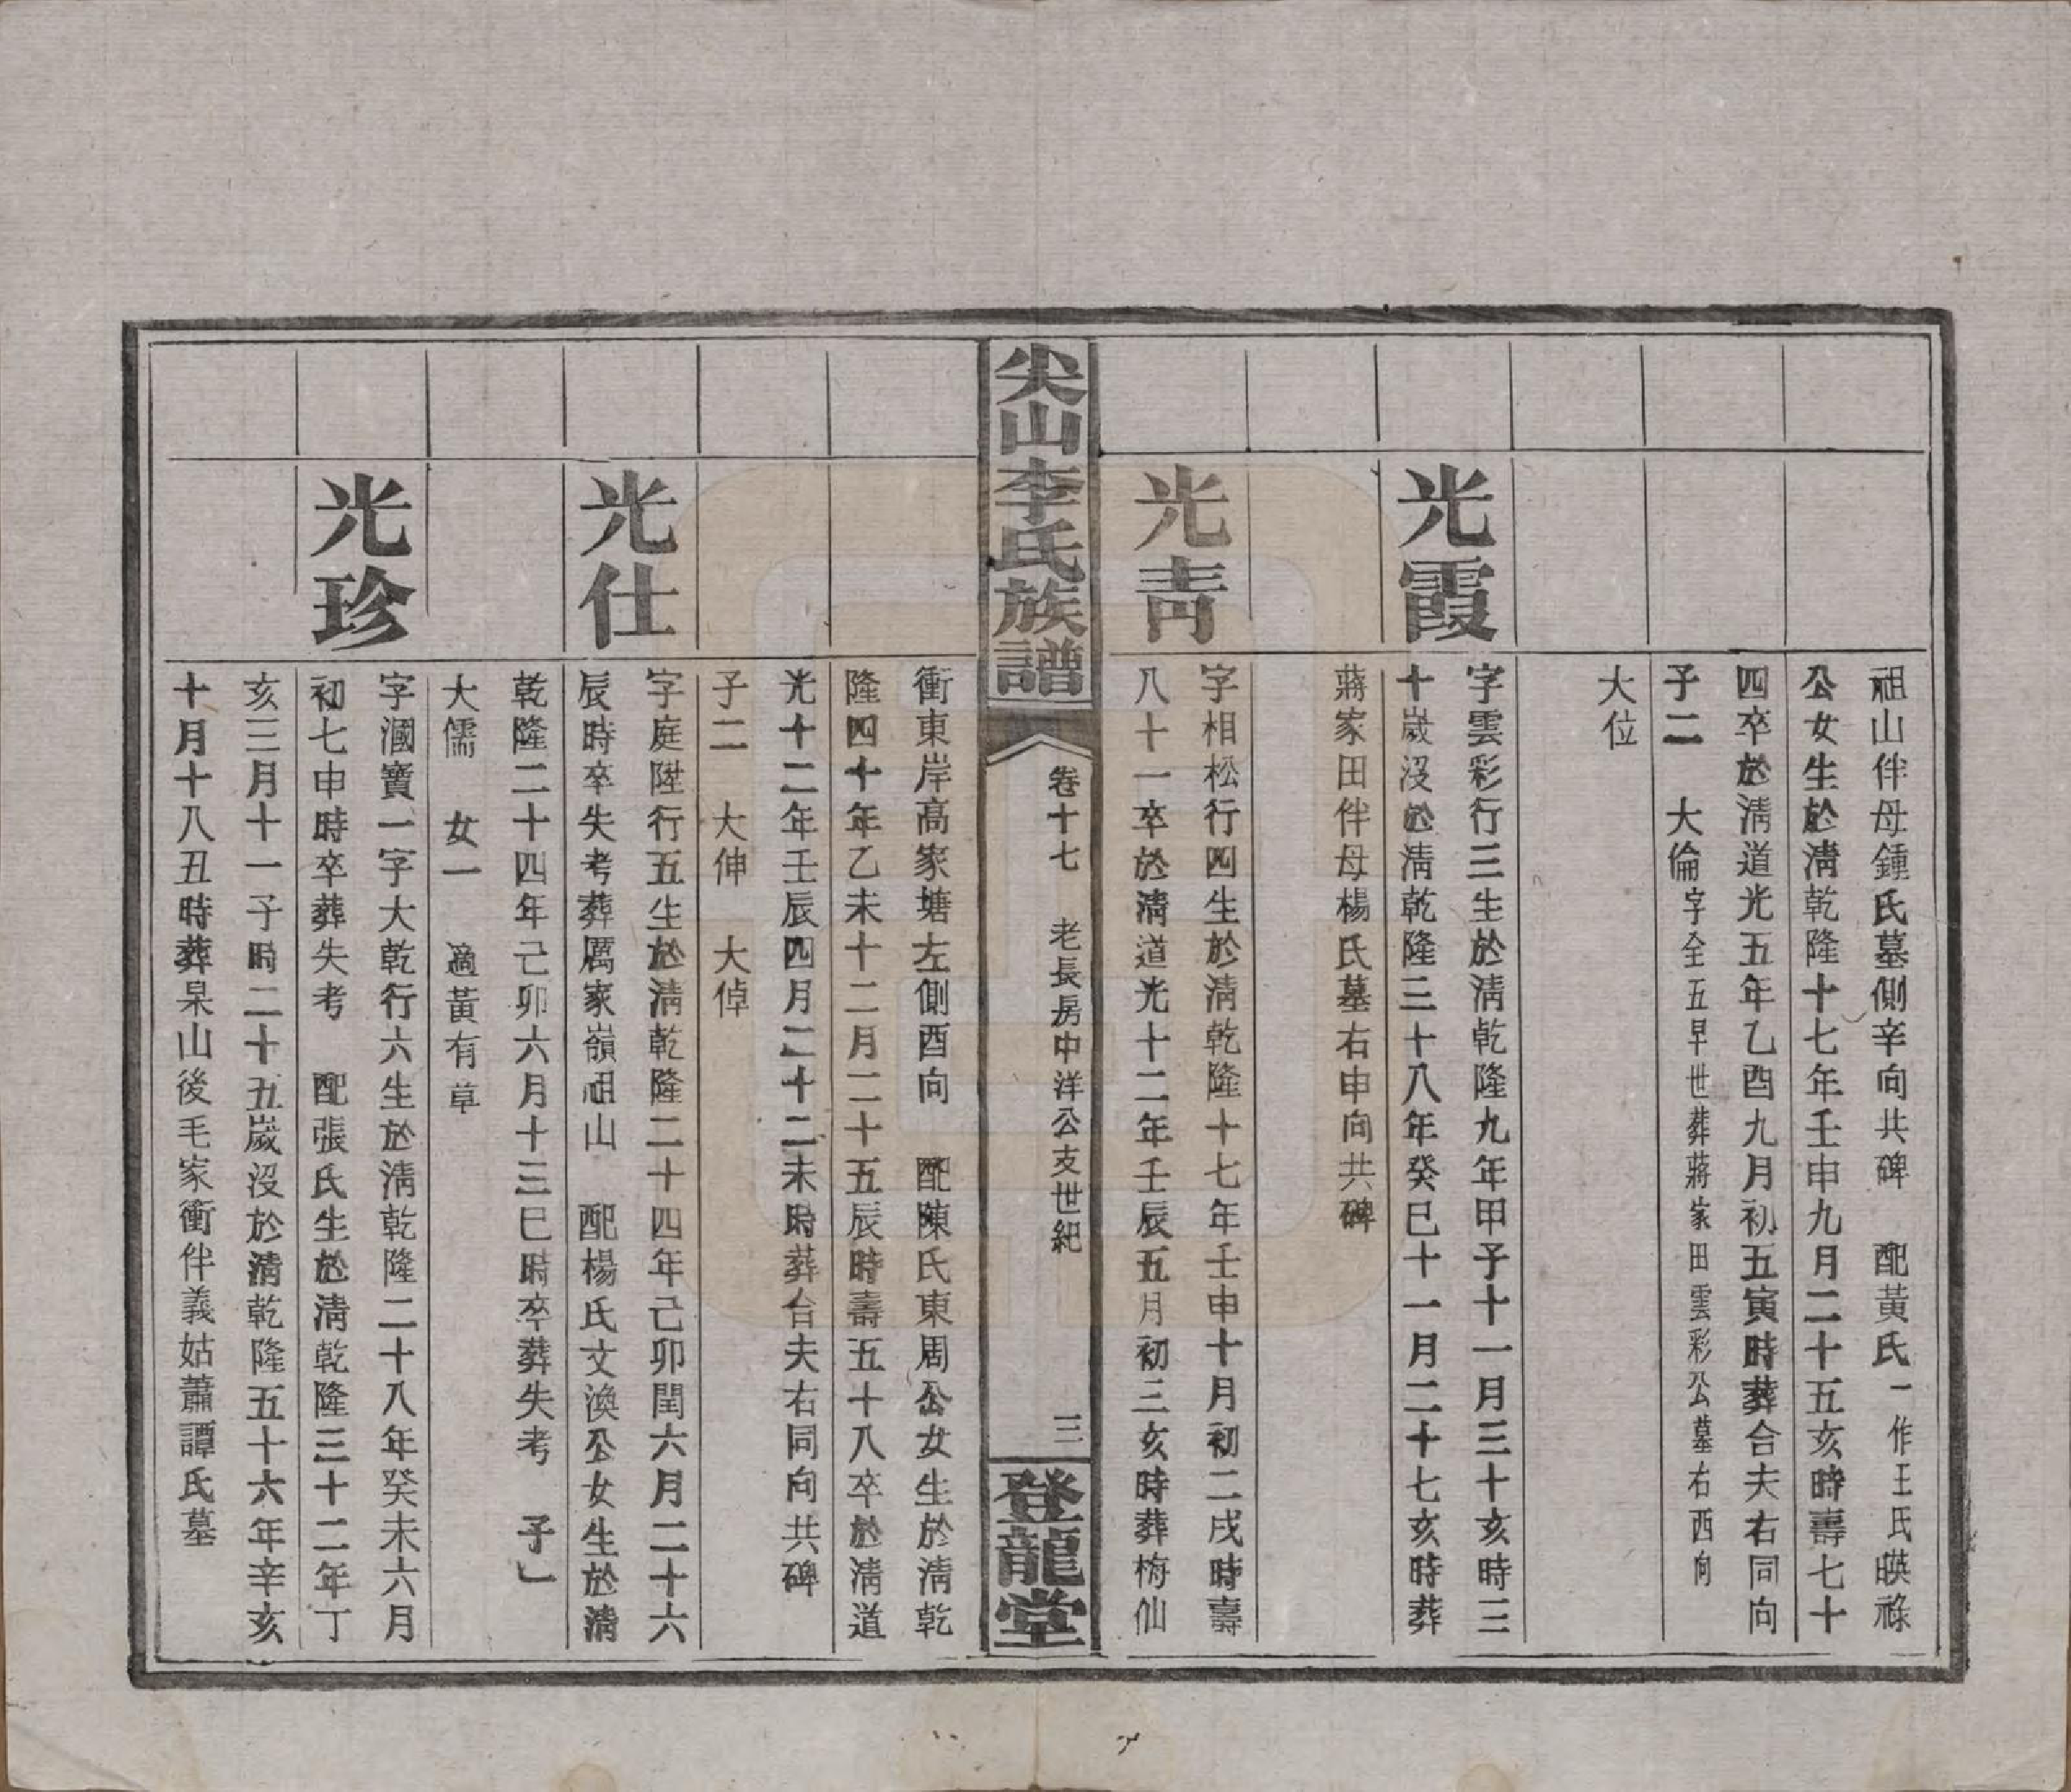 祖山伴母鍾氏墓側辛向共碑　配黃氏一作王氏暎祿
公女生於清乾隆十七年壬申九月二十五亥時壽七十
四卒於清道光五年乙酉九月初五寅時葬合夫右同向
子二　大倫字全五早世葬蔣家田雲彩公墓右西向
大位
光霞
字雲彩行三生於清乾隆九年甲子十一月三十亥時三
十歲沒於清乾隆三十八年癸巳十一月二十七亥時葬
蔣家田伴母楊氏墓右申向共碑
光青
字相松行四生於清乾隆十七年壬申十月初二戌時壽
八十一卒於清道光十二年壬辰五月初三亥時葬梅仙
尖山李氏族譜
卷十七　老長房中洋公支世紀　三
登龍堂
衝東岸高家塘左側酉向　配陳氏東周公女生於清乾
隆四十年乙未十二月二十五辰時壽五十八卒於清道
光十二年壬辰四月二十二未時葬合夫右同向共碑
子二　大伸　大倬
光仕
字庭陞行五生於清乾隆二十四年己卯閏六月二十六
辰時卒失考葬厲家嶺祖山　配楊氏文渙公女生於清
乾隆二十四年己卯六月十三巳時卒葬失考　子一
大儒　女一　適黃有草
光珍
字漍寶一字大乾行六生於清乾隆二十八年癸未六月
初七申時卒葬失考　配張氏生於清乾隆三十二年丁
亥三月十一子時二十五歲沒於清乾隆五十六年辛亥
十月十八丑時葬杲山後毛家衝伴義姑蕭譚氏墓